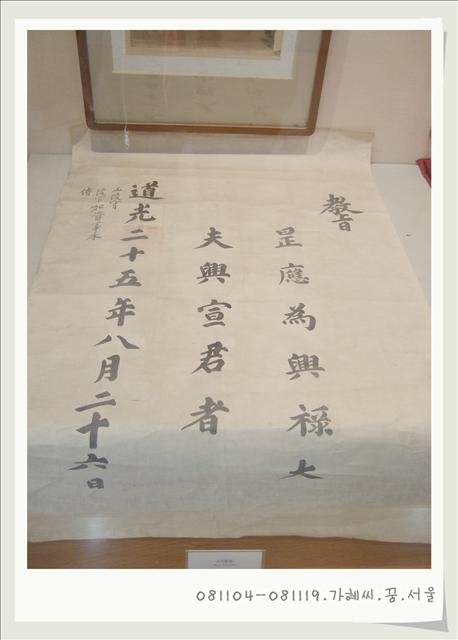 教旨
昰應為興祿大
夫興宣君者
道光二十五年八月二十六日
081104-081119.가혜씨.꿈.서울